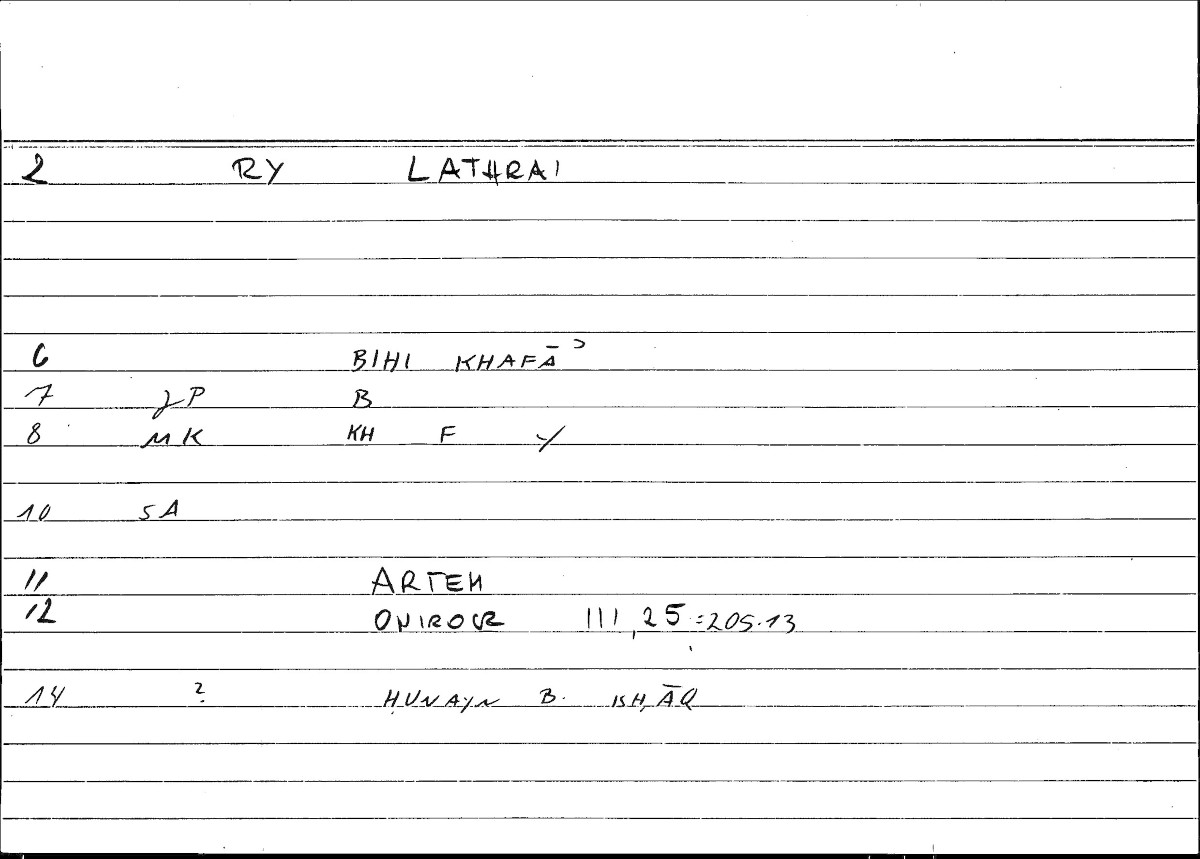 2 RY LATHRAI
6 BIHI KHAFĀʾ
7 JP B
8 MK KH F Y
10 SA
11 ARTEM
12 ONIROCR III, 25 = 205.13
14 ? ḤUNAYN B. ISḤĀQ